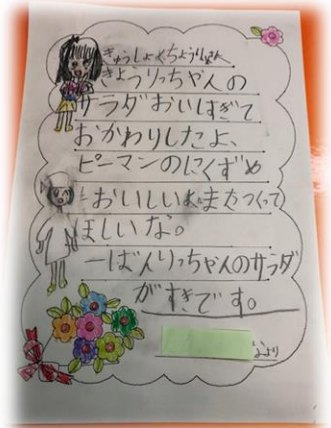 きゅうしょくちょうりいん
きょうりっちゃんの
サラダおいしすぎて
おかわりしたよ、
ピーマンのにくずめ
おいしいねまたつくって
ほしいな。
一ばんりっちゃんのサラダ
がすきです。
より